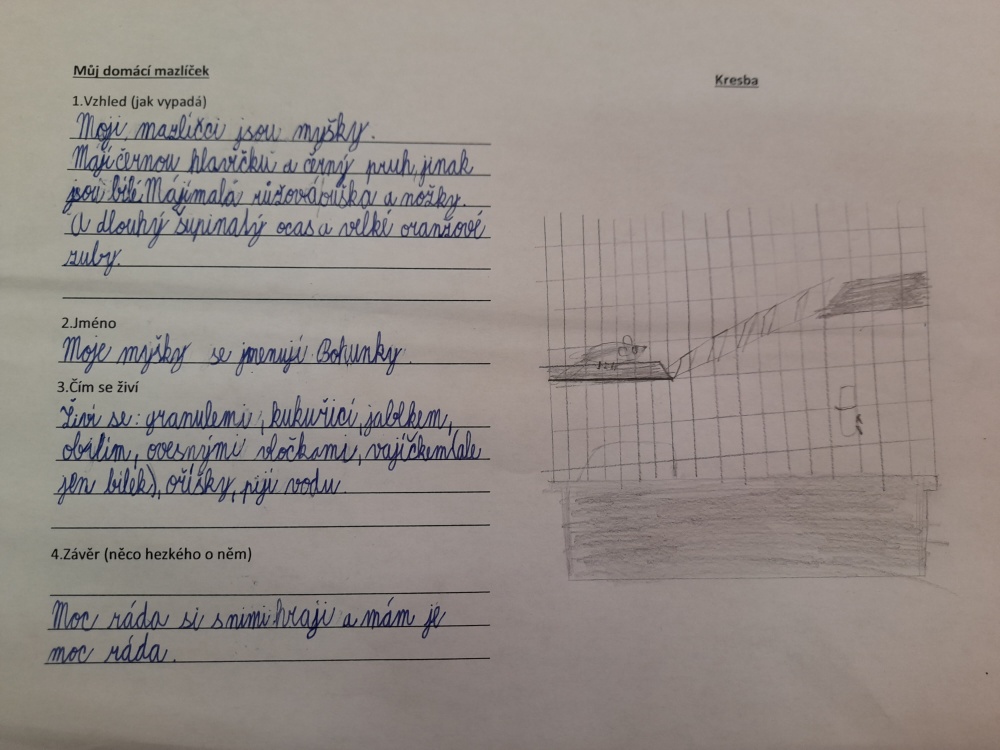 Můj domácí mazlíček
Kresba
1.Vzhled (jak vypadá)
Moji, mazlíčci jsou myšky.
Mají černou hlavičku a černý pruh, jinak
jsou bílé. Májí malá růžová ouška a nožky.
A dlouhý šupinatý ocas a velké oranžové
zuby.
2.Jméno
Moje myšky se jmenují Bohunky.
3.Čím se živí
Živí se: granulemi, kukuřicí, jablkem,
obilím, ovesnými vločkami, vajíčkem (ale
jen bílek), oříšky, pijí vodu.
4.Závěr (něco hezkého o něm)
Moc ráda si s nimi hraji a mám je
moc ráda.